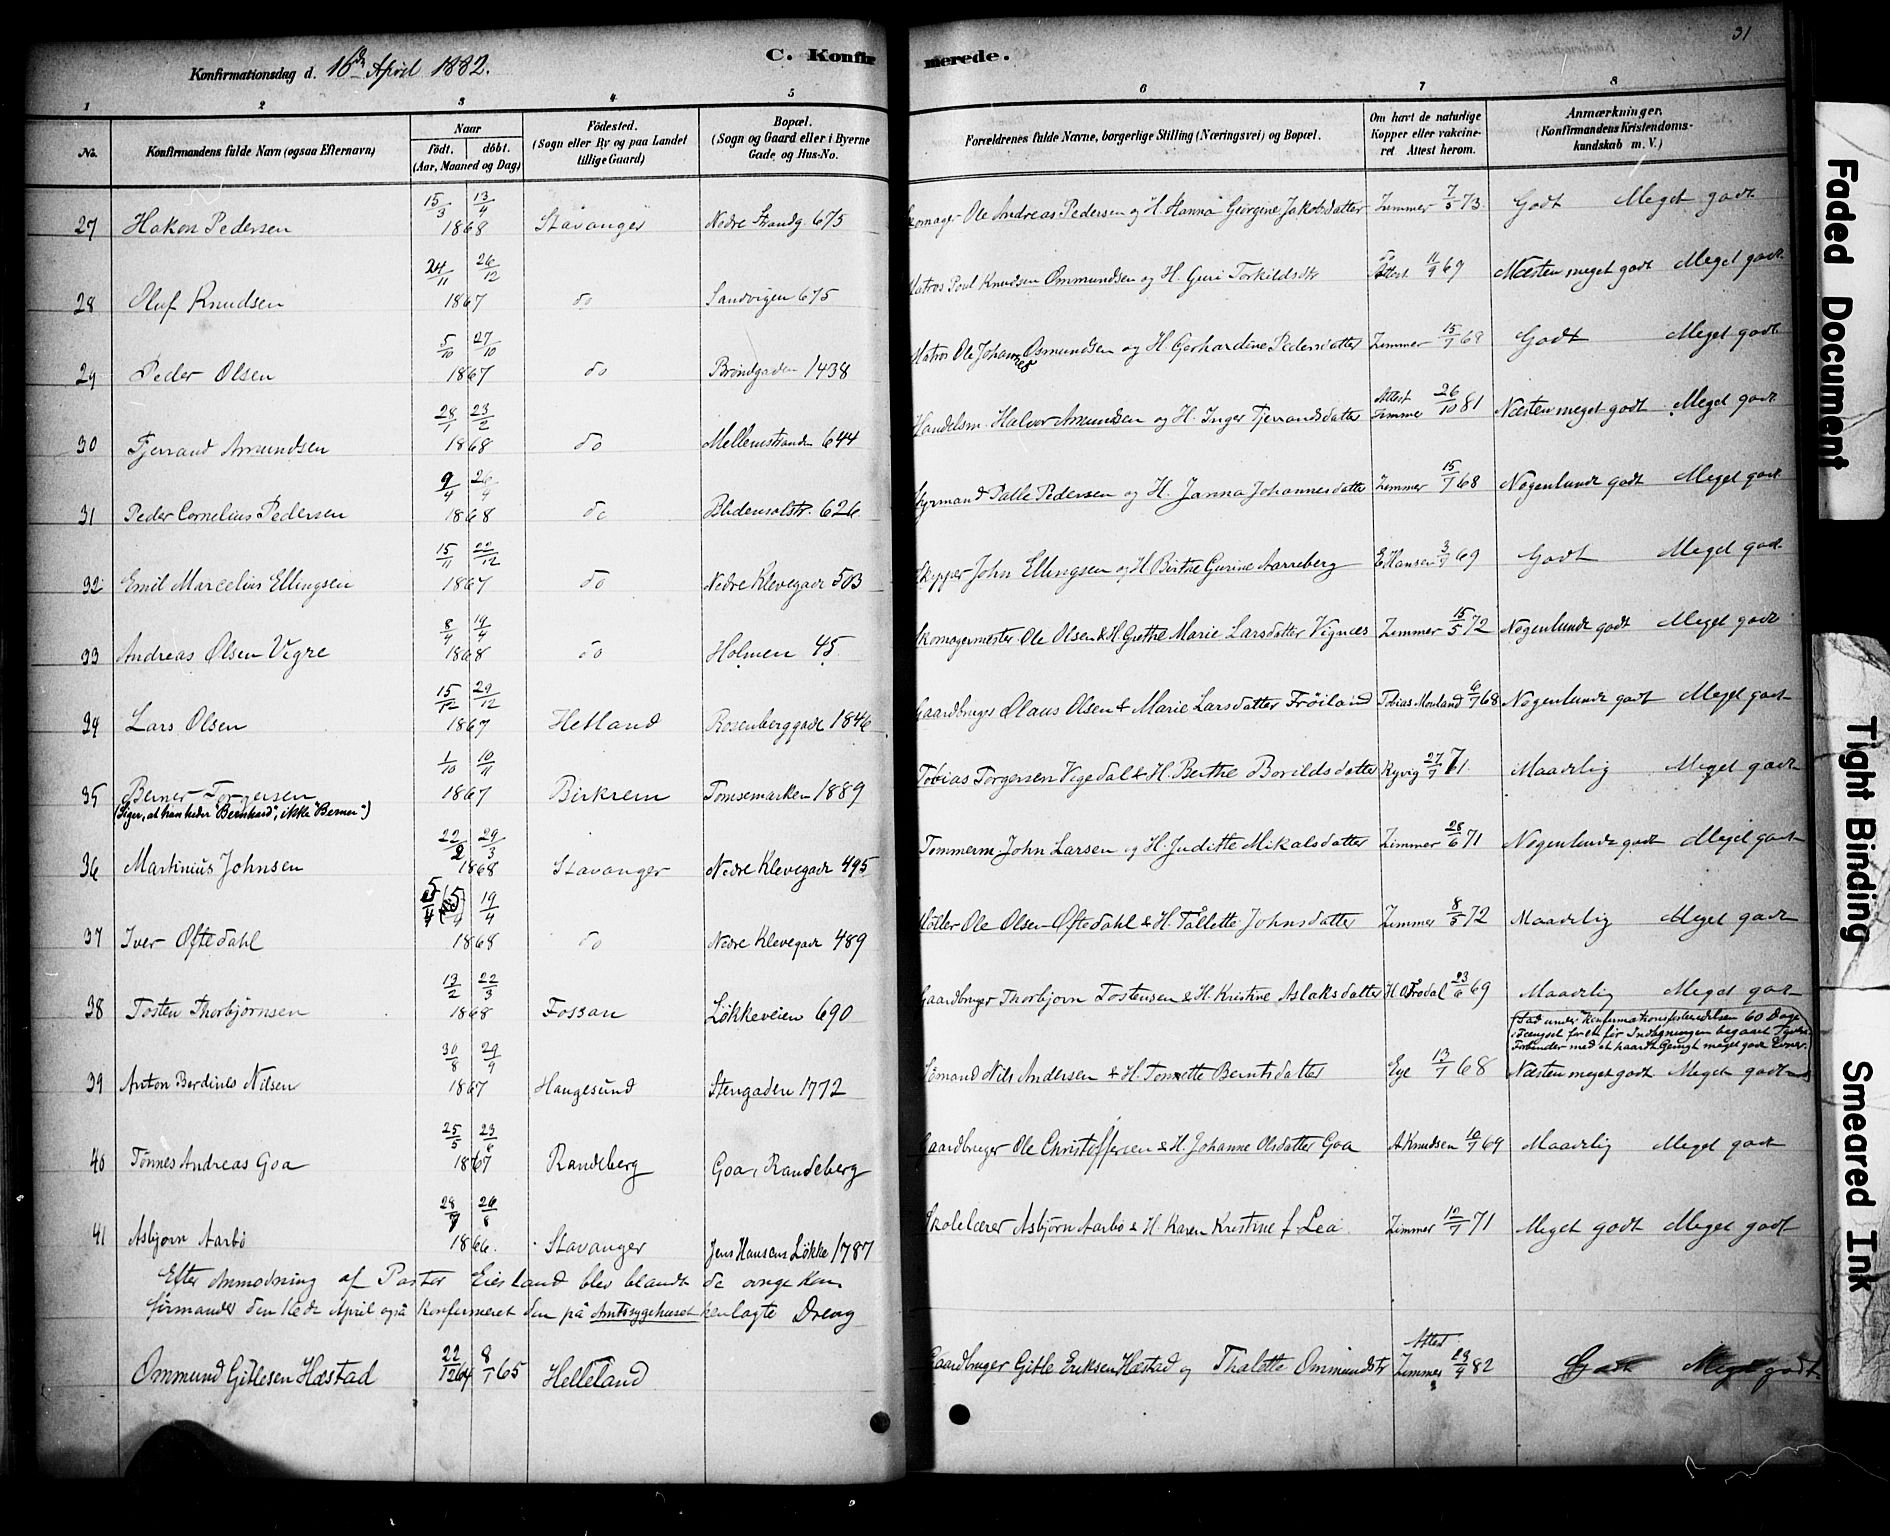 Konfirmationsdag d. 16de April 1882. C. Konfirmerede. 31
1 2 3 4 5 6 7 8
No. Konfirmandens fulde Navn (ogsaa Efternavn) Naar født. døbt. (Aar, Maaned og Dag) Fødested. (Sogn eller By og paa Landet tillige Gaard) Bopæl. (Sogn og Gaard eller i Byerne Gade og Hus-No. Forældrenes fulde Navne, borgerlige Stilling (Næringsvei) og Bopæl. Om havt de naturlige Kopper eller vakcineret Attest herom. Anmærkninger. (Konfirmandens Kristendomskundskab m. V.)
27 Hakon Pedersen 15/3 13/4 1868 Stavanger Nedre Strandg. 675 Skomager Ole Andreas Pedersen og H. Hanna Georgine Jakobsdatter Zimmer 7/5 73. Godt Meget godt
28 Oluf Knudsen 24/11 26/12 1867 do Sandvigen 675 Matros Poul Knudsen Ommundsen og H. Guri Torkildsdtr Attest 11/9 69 Næsten meget godt Meget godt
29 Peder Olsen 5/10 27/10 1867 do Brøndgaden 1438 Matros Ole Johannes Osmundsen og H. Gerhardine Pedersdatter Zimmer 15/7 68 Godt Meget godt
30 Tjerrand Amundsen 28/1 23/2 1868 do Mellemstranden 644 Handelsm. Halvor Amundsen og H. Inger Tjerrandsdatter Attest Zimmer 26/10 81 Næsten meget godt Meget godt
31 Peder Cornelius Pedersen 9/4 26/4 1868 do Blidensolstr. 626 Styrmand Palle Pedersen og H. Janna Johannesdatter Zimmer 15/7 68 Nogenlunde godt Meget godt
32 Emil Marcelius Ellingsen 15/11 22/12 1867 do Nedre Klevegade 503 Skipper John Ellingsen og H. Birthe Gurine Aarreberg E Hansen 3/9 69 Godt Meget godt
33 Andreas Olsen Vigre 8/4 19/4 1868 do Holmen 45 Skomagermester Ole Olsen & H. Grethe Marie Larsdatter Vignæs Zimmer 15/5 72 Nogenlunde godt Meget godt
34 Lars Olsen 15/12 29/12 1867 Hetland Rosenberggade 1846 Gaardbruger Olaus Olsen & Marie Larsdatter Frøiland Tobias Morland 6/7 68 Nogenlunde godt Meget godt
35 Berner Torgersen 1/10 10/11 1867 Birkrem Tomsemarken 1889 Tobias Torgersen Vegedal & H. Berthe Borildsdatter Ryvig 27/7 71. Maadelig Meget godt
(Siger, at han heder "Bernhard", ikke "Berner".)
36 Martinius Johnsen 22/2 29/3 1868 Stavanger Nedre Klevegade 495 Tømmerm. John Larsen og H. Juditte Mikalsdatter Zimmer 28/6 71 Nogenlunde godt Meget godt
37 Iver Øftedahl 5/4 19/4 1868 do Nedre Klevegade 489 Møller Ole Olsen Øftedahl & H. Tallette Johnsdatter Zimmer 8/5 72 Maadelig Meget godt
38 Tosten Thorbjørnsen 13/2 22/3 1868 Fossan Løkkeveien 690 Gaardbruger Thorbjørn Tostensen & H. Kristine Aslaksdatter 23/6 69 Maadelig Meget godt
(Sad under Konfirmationsforberedelsen 60 Dage i Fængsel for et før Indtegningen begaaet Tyveri. Forbinder med et haardt Gemyt meget gode Evner.
39 Anton Berdines Nilsen 30/8 29/9 1867 Haugesund Stengaden 1772 Sømand Nils Andersen & H. Tonette Berntsdatter Eye 13/7 68 Næsten meget godt Meget godt
40 Tønnes Andreas Goa 25/5 23/6 1867 Randeberg Goa, Randeberg Gaardbruger Ole Christoffersen & H. Johanne Olsdatter Goa A Knudsen 10/7 69 Maadelig Meget godt
41 Asbjørn Aarbø 28/7 26/8 1866. Stavanger Jens Hansens Løkke 1787 Skolelærer Asbjørn Aarbø & H. Karen Kristine f. Lea Zimmer 10/7 71 Meget godt Meget godt
Efter Anmodning af Pastor Eiesland blev blandt de øvrige Kon-
firmander den 16de April også konfirmeret den på Amtssygehuset henlagte Dreng
Ommund Gitlesen Hæstad 22/12 64 8/1 65 Helleland Gaardbruger Gitle Eriksen Hæstad og Thalette Ommundsdtr Attest Zimmer 29/9 82 Godt Meget godt
Faded Document
Tight Binding
Smeared Ink